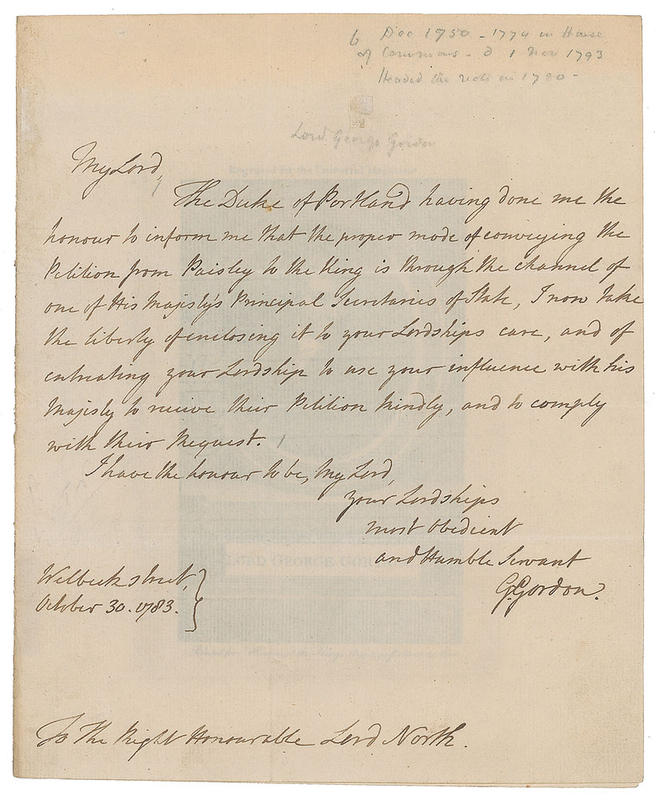 b Dec 1750 - 1774 in House
of Commons - d 1 Nov 1793
Headed the riots in 1780 -
Lord George Gordon
My Lord,
The Duke of Portland having done me the
honour to inform me that the proper mode of conveying the
Petition from Paisley to the King is through the channel of
one of His Majesty's Principal Secretaries of State, I now take
the liberty of enclosing it to your Lordships care, and of
entreating your Lordship to use your influence with his
Majesty to receive their Petition kindly, and to comply
with their Request.
I have the honour to be, My Lord,
your Lordships
most Obedient
and Humble Servant
G. Gordon.
Welbeck street,
October 30. 1783.
LORD GEORGE GOR
To The Right Honourable Lord North.